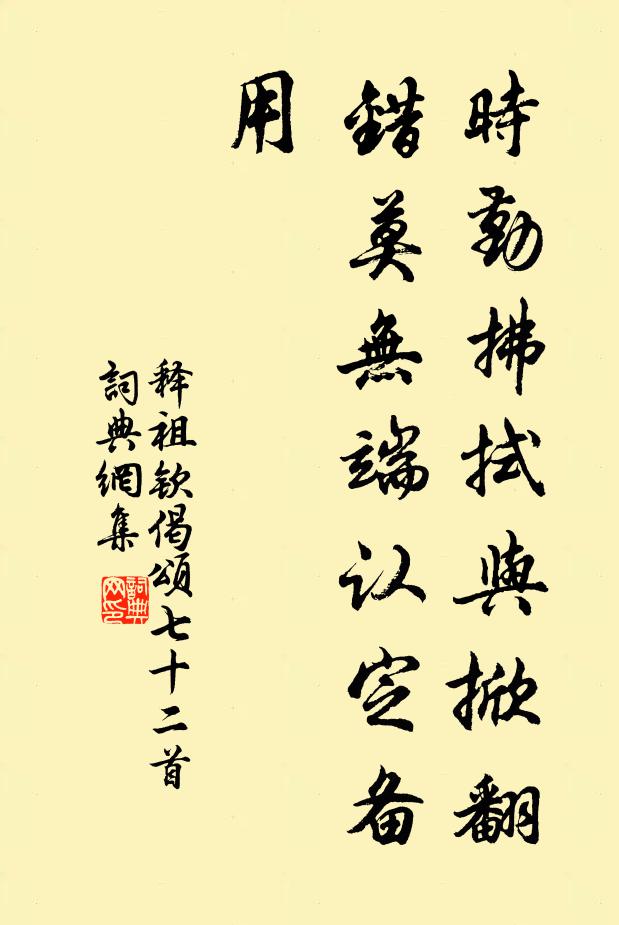 時勤拂拭與掀翻
錯莫無端认定备
用
释祖钦偈頌七十二首
詞典網集
詞典
网印